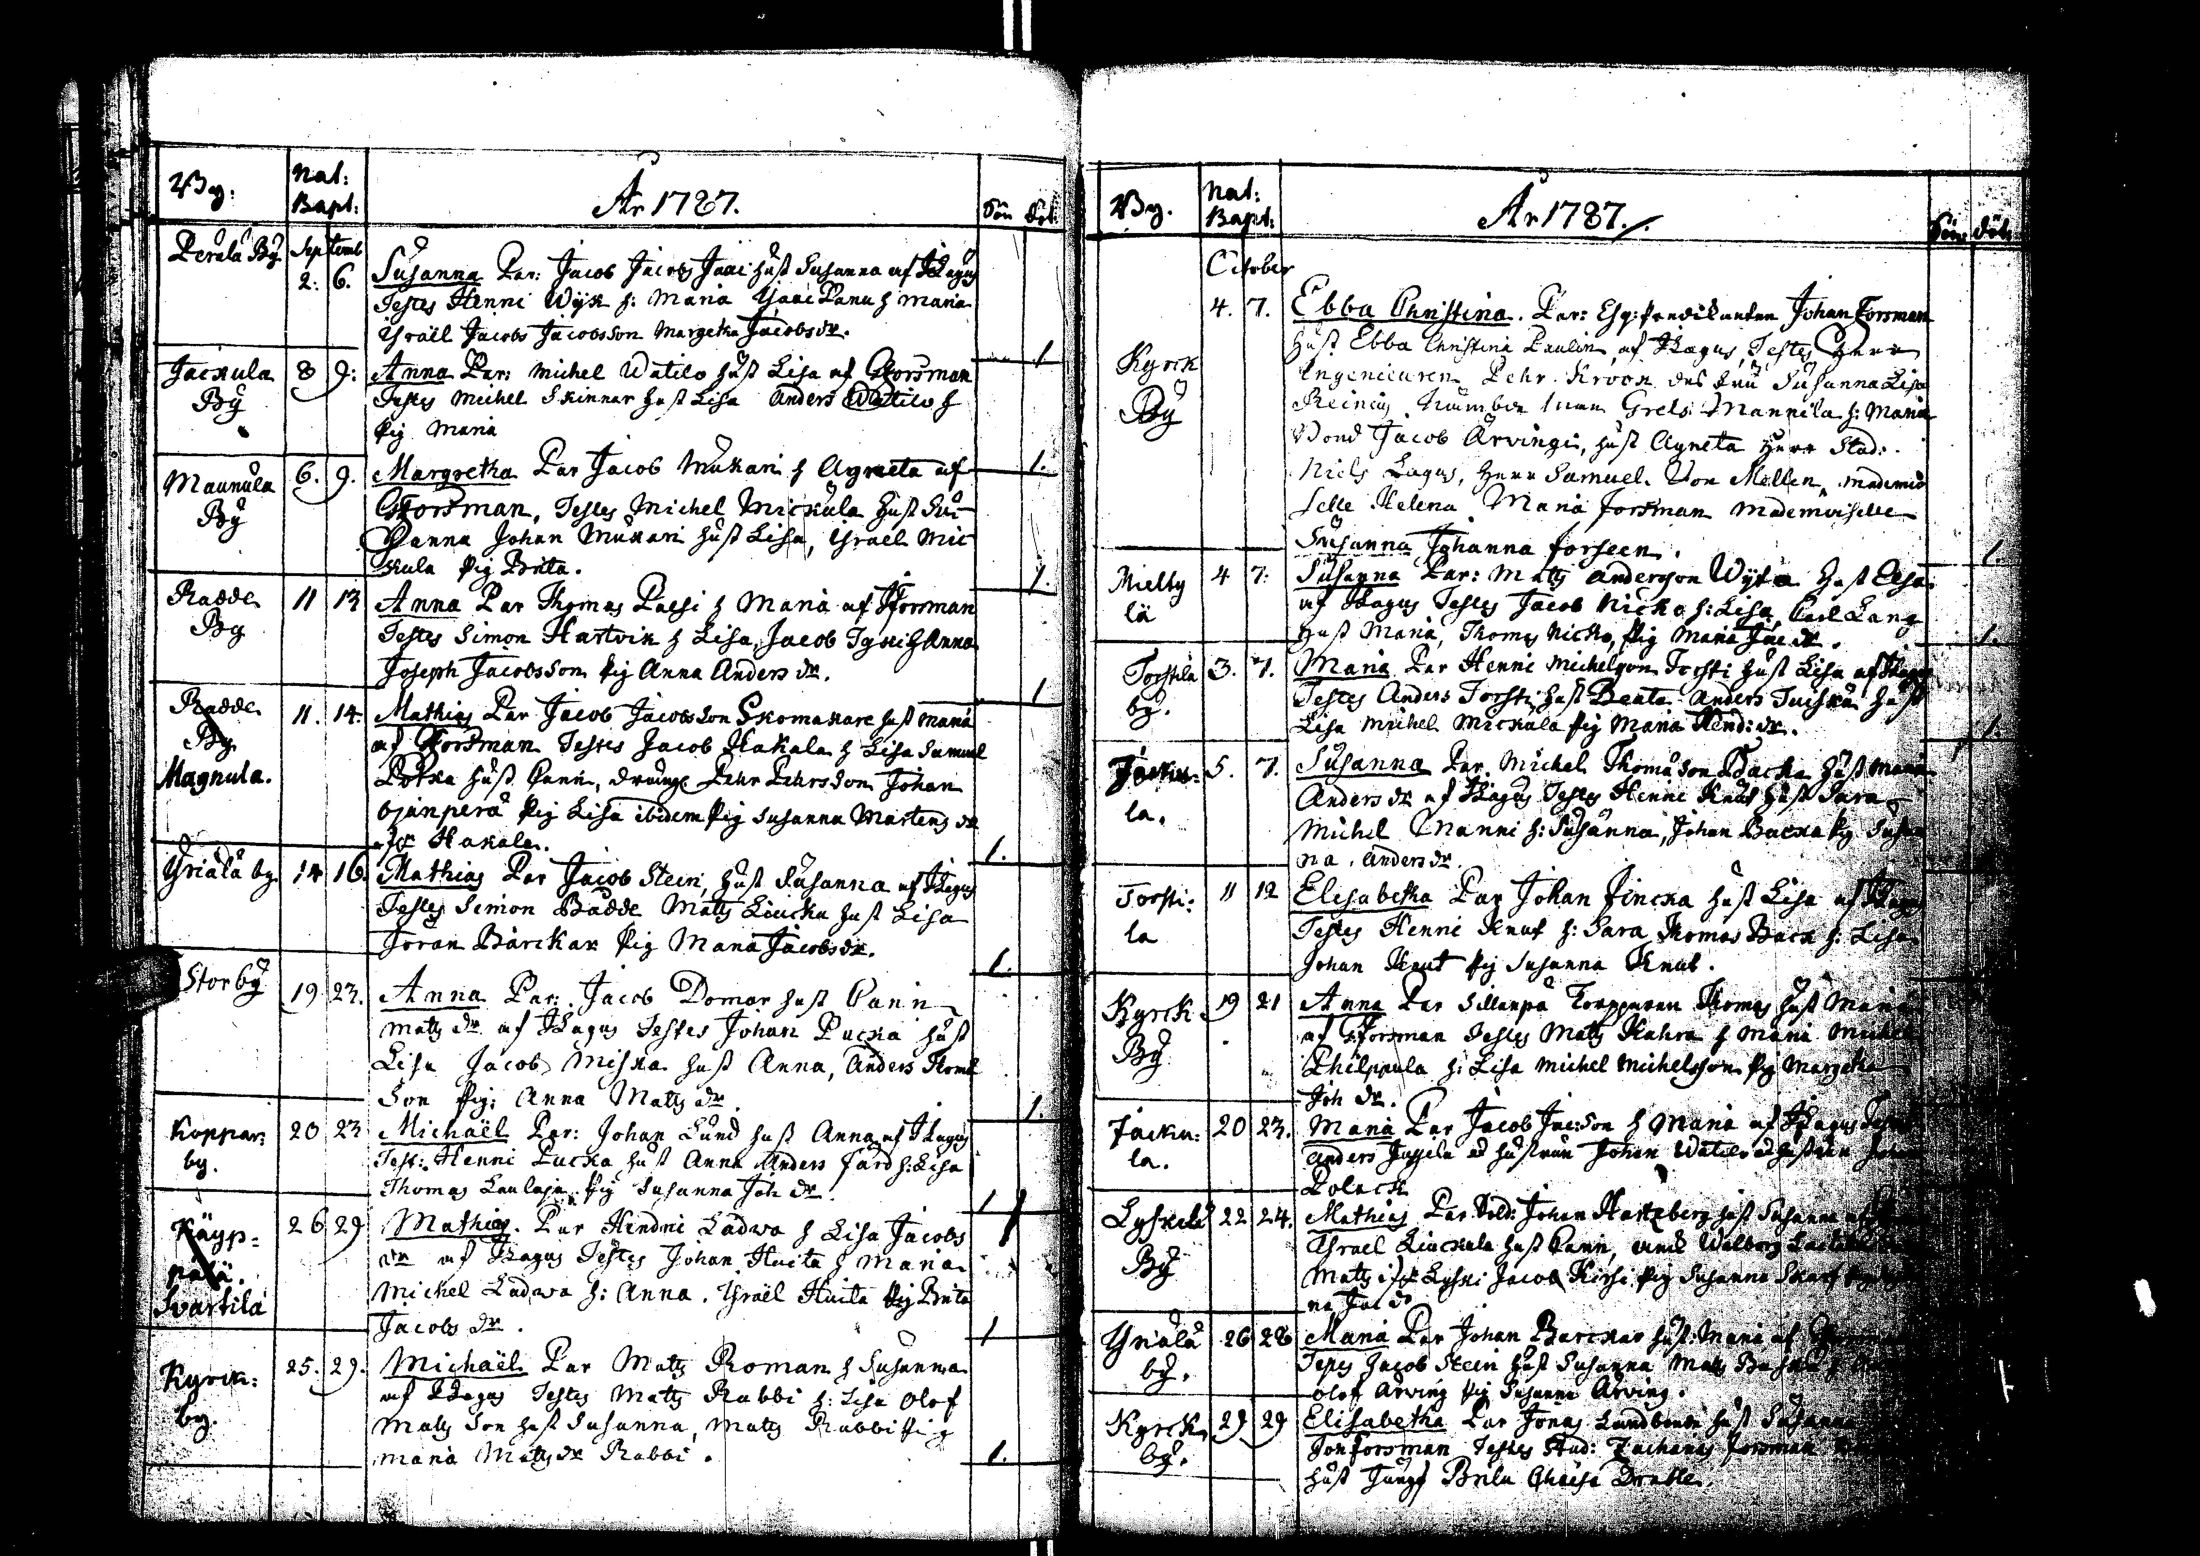 By:
Nat:
Bapt:
År 1787.
Sön Döt:
Perälä By
Septemb
2. 6. Susanna Par: Jacob Jacobs Jaaci hust Susanna af HLagus
Testes Henric Wijk h: Maria Isaac Panu h Maria
Israël Jacobs Jacobsson Margetha Jacobsdr.
1
Jackula By
8 9. Anna Par: Michel Watilo hust Lisa af Forsman
Testes Michel Skinnar hust Lisa Anders Watilo h
pig Maria
1.
Maunula By
6. 9. Margretha Par Jacob Mukari h Agneta af
Forsman, Testes Michel Mickula hust Su-
sanna Johan Mukari hust Lisa, Israel Mic
kula pig Brita.
1.
Radde By
11 13 Anna Par Thomas Passi h Maria af Forsman
Testes Simon Hartvik h Lisa, Jacob Tyski h Anna
Joseph Jacobsson pig Anna Anders dr.
1
Radde By
Magnula.
11. 14. Mathias Par Jacob Jacobsson Skomakare hust Maria
af Forsman Testes Jacob Hakala h Lisa Samuel
Potka hust Carin, dränge Pehr Pehrsson Johan
Ojanperä pig Lisa ibidem pig Susanna Martens dr
Hakala.
1.
Yriälä by.
14 16. Mathias Par Jacob Stein, hust Susanna af HLagus
Testes Simon Badde Matts Liucku hust Lisa
Jöran Bärckar pig Maria Jacobsdr.
1.
Storby
19 23. Anna Par: Jacob Domar hust Carin
Matts dr af HLagus Testes Johan Pucka hust
Lisa Jacob Miska hust Anna, Anders Thoms
Son pig: Anna Matts dr.
1.
Koppar: by.
20 23 Michaël Par: Johan Lund hust Anna af HLagus
Test: Henric Pucka hust Anna Anders Färd h: Lisa
Thomas Laulaja pig Susanna Joh dr.
1
Käyp=
Svartila
26 29 Mathias. Par Hindric Ladwa h Lisa Jacobs
dr af HLagus Testes Johan Huita h Maria
Michel Ladwa h: Anna. Israël Huita pig Brita
Jacobs dr.
1
Kyrck: by.
25. 29. Michaël Par Matts Roman h Susanna
af HLagus Testes Matts Rabbi h: Lisa Olof
Matts Son hust Susanna, Matts Rabbi pig
Maria Matts dr Rabbi.
1.
By.
Nat:
Bapt:
År 1787.
Sön Döt:
October
Kyrck By
4. 7. Ebba Christina. Par: Esq: predikanten Johan Forsman
hust Ebba Christina Paulin af HLagus, Testes Herr
Ingenieuren Pehr Kröök des fru Susanna Lisa
Reinius Grels Mannila h: Maria
Bond Jacob Ärvingi, hust Agneta Herr Stud:
Niels Lagus, Herr Samuel Von Mellen, Mademoi
selle Helena Maria Forsman Mademoiselle
Susanna Johanna Forseen.
1.
Mielty lä
4 7. Susanna Par: Matts Andersson Wyka hust Lisa
af HLagus Testes Jacob Nicko h: Lisa, Carl Lang
hust Maria, Thomas Nicko, pig Maria Jac dr.
1.
Torstila by.
3. 7. Maria Par Henric Michelsson Torsti hust Lisa af HLagus
Testes Anders Torsti hust Beata Anders hust
Lisa Michel Mickala pig Maria Hend: dr.
1.
Jacku: la.
5. 7. Susanna Par. Michel Thomasson Backa hust Maria
Anders dr af HLagus Testes Henric Knut hust Sara
Michel Manni h: Susanna, Johan Backa pig Susan
na Anders dr.
Torsti: la
11 12 Elisabetha Par Johan Fincka hust Lisa af HLagus
Testes Henric Knut h: Sara Thomas Back h: Lisa
Johan Knut pig Susanna Knut.
Kyrck By
19 21 Anna Par Sillanpä Torpparen Thomas hust Maria
af Forsman Testes Matts Kahra h Maria Michel
Philppula h: Lisa Michel Michelsson pig Margetha
Joh dr.
Jacku: la.
20 23. Maria Par Jacob Jacson h Maria af HLagus Testes
Anders Jussila ad hustrun Johan Watilo ad hustrun Johan
Polack
Lyskilä By
22 24. Mathias Par Sold: Johan Hartzberg hust Susanna
Israel Liuckula hust Carin, Walborg
Matts Lyski Jacob Kirsi pig Susanna Skarf
na Jac dr
Yriälä by.
26 28 Maria Par Johan Barckar hust: Maria af
Testes Jacob Stein hust Susanna Matts
Olof Ärving pig Susanna Ärving.
Kyrck by.
29 29 Elisabetha Par Jonas Lundbom hust Susanna
Forsman Testes Stud: Zacharias Forsman
hust Jungf Brita Chaisa Drakke.